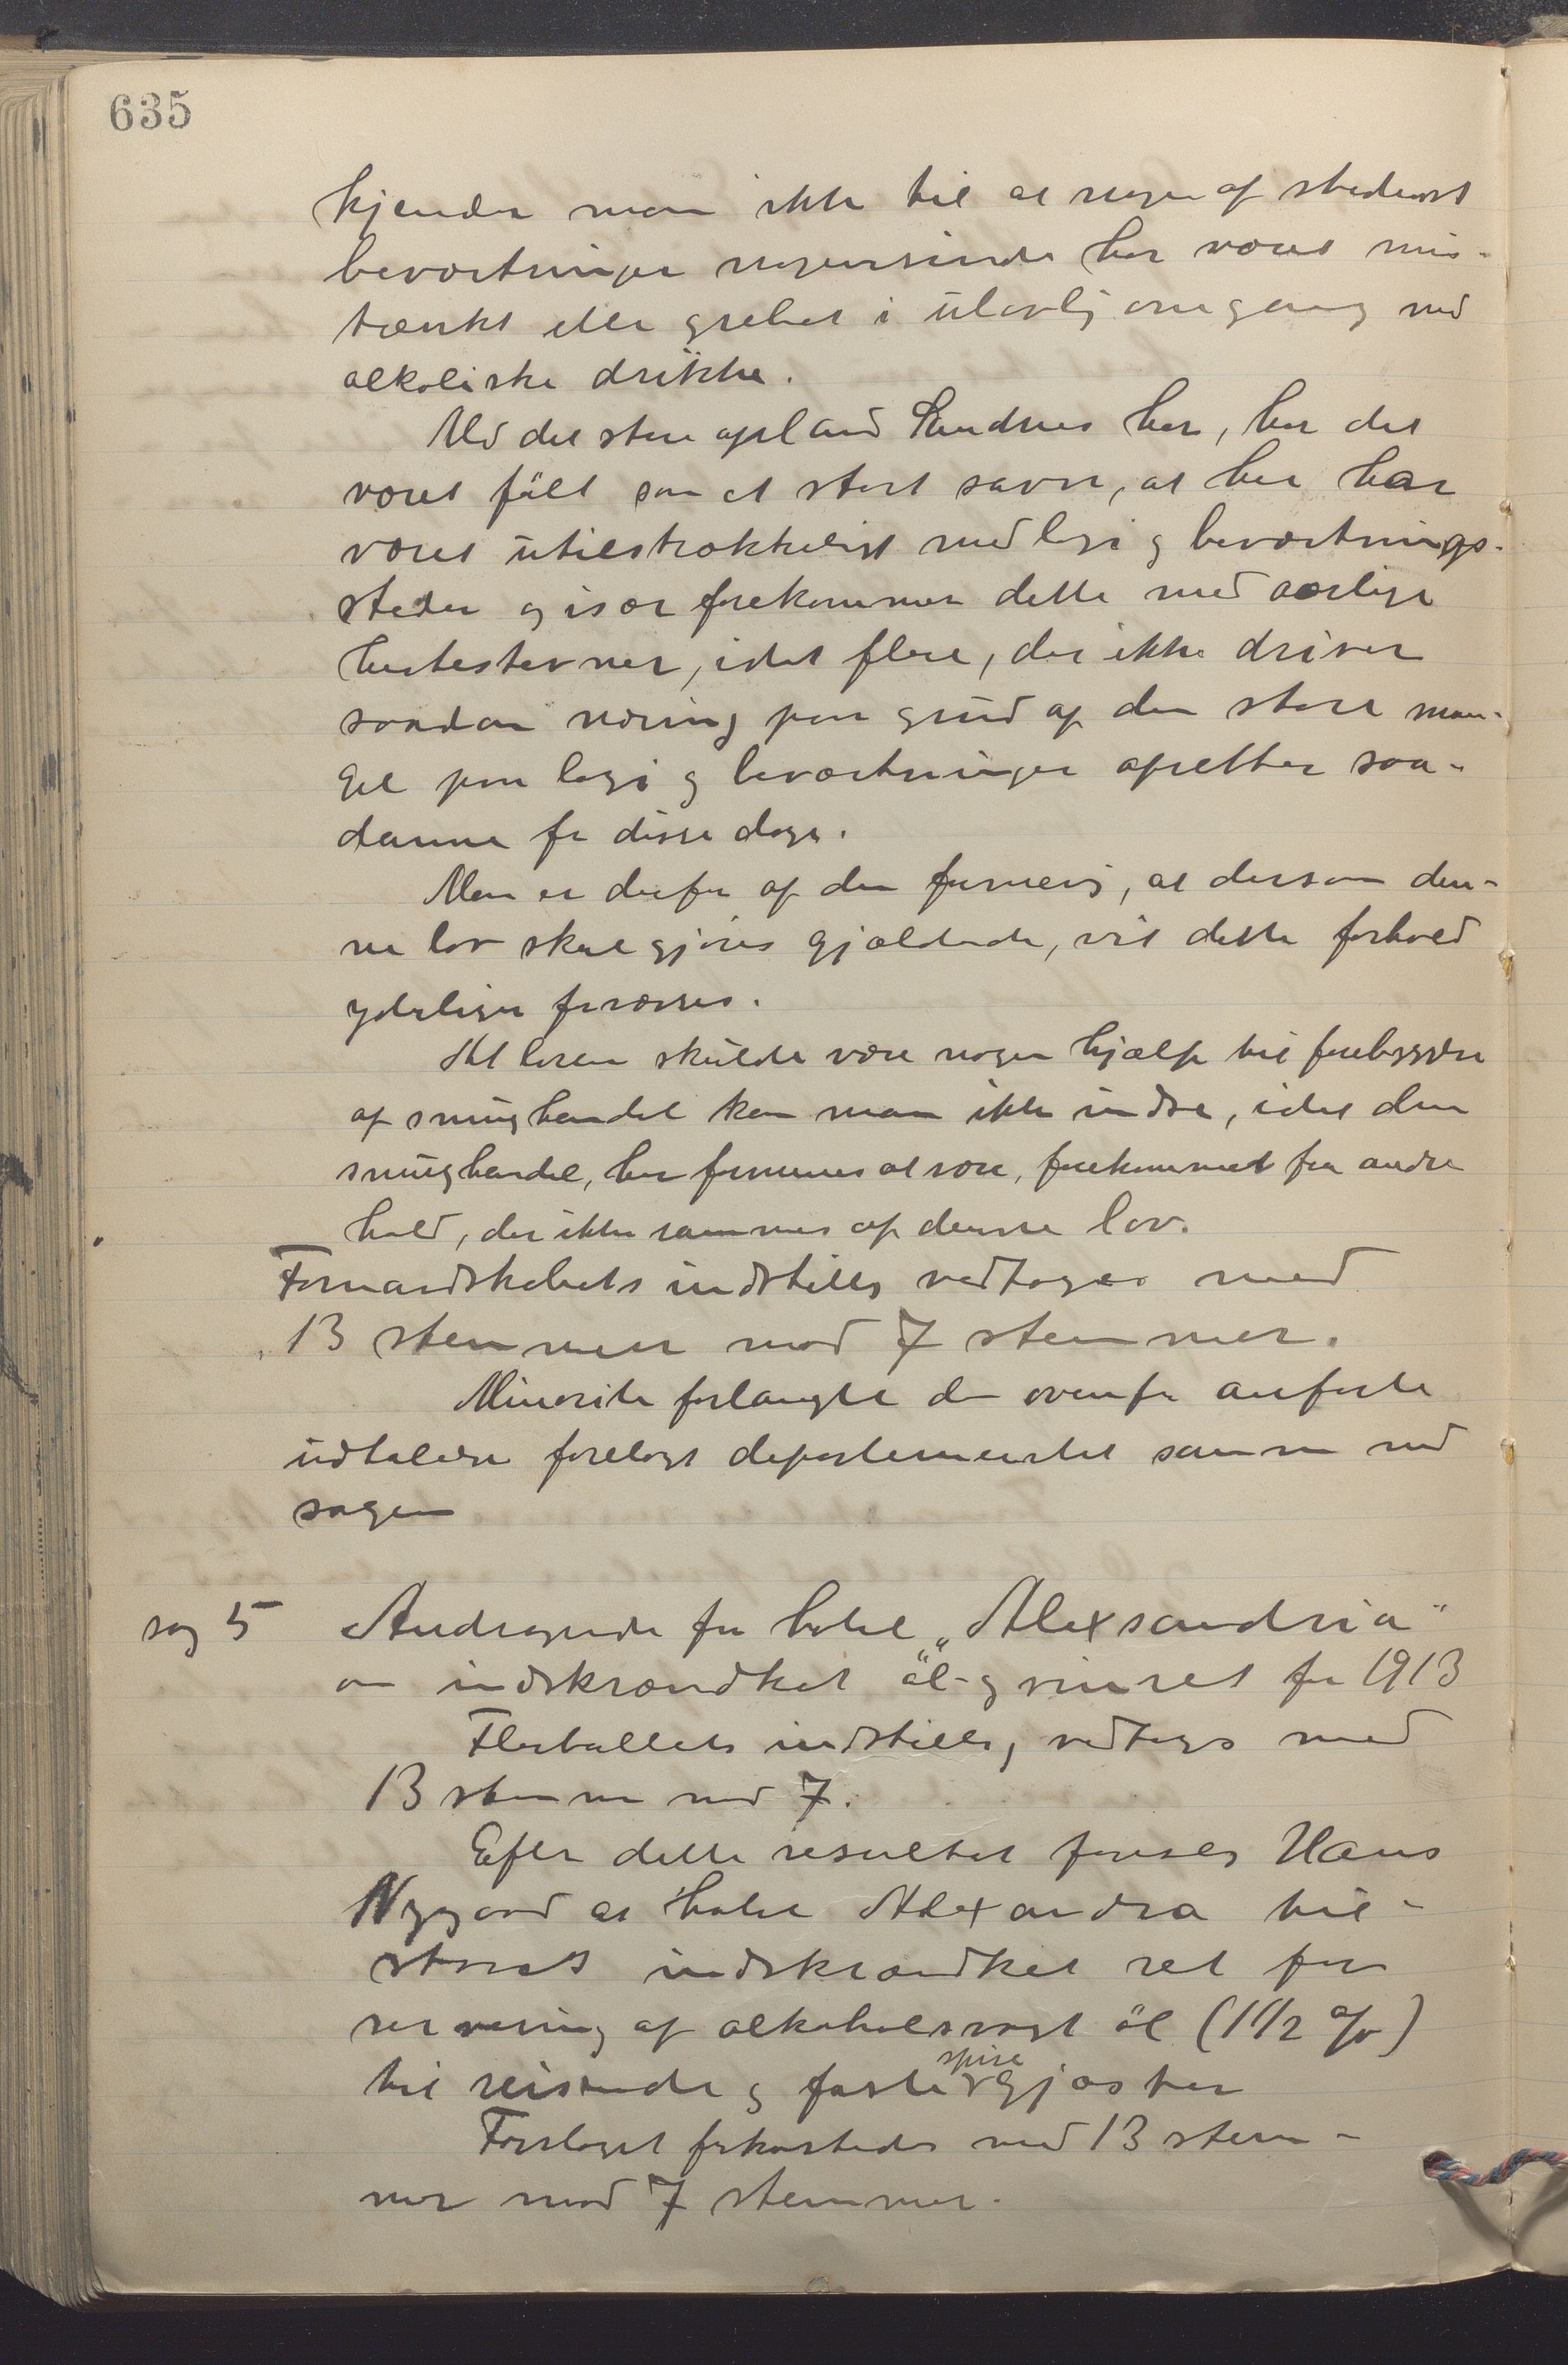 635
kjender man ikke til at nogen af stedens
beværtninger nogensinde har været mis-
tænkt eller grebet i ulovlig omgang med
alkoliske drikke.
Med det store opland Sandnes har, har det
været fölt som et stort savn, at her har
været utilstrækkeligt med logi og beværtnings-
steder og især forekommer dette med aarlige
hestestevner, idet flere, der ikke driver
saadan næring paa grund af den store man-
gel paa logi og beværtninger opretter saa-
danne for disse dage.
Man er derfor af den formening, at dersom den-
ne lov skal gjöres gjældende, vil dette forhold
yderligere forværres.
At loven skulde være nogen hjælp til forebyggelse
af smughandel kan man ikke indse, idet den
smughandel, her formenes at være, forekommet fra andre
hold, der ikke rammes af denne lov.
Formandskabets indstilling vedtoges med
13 stemmer mod 7 stemmer.
Minoriteten forlangte den ovenfor anförte
udtalelse forelagt departementet sammen med
sagen
sag 5 Andragende fra hotel „Alexsandria"
om indskrændket öl- og vinret for 1913
Flertallets indstilling vedtoges med
13 stemmer mod 7.
Efter dette resultat foreslog Hans
Nygaard at hotel Alexandra til-
stodes indskrændket ret for
servering af alkoholsvagt öl (1 1/2 %)
til reisende og faste spisegjæster
Forslaget forkastedes med 13 stem-
mer mod 7 stemmer.